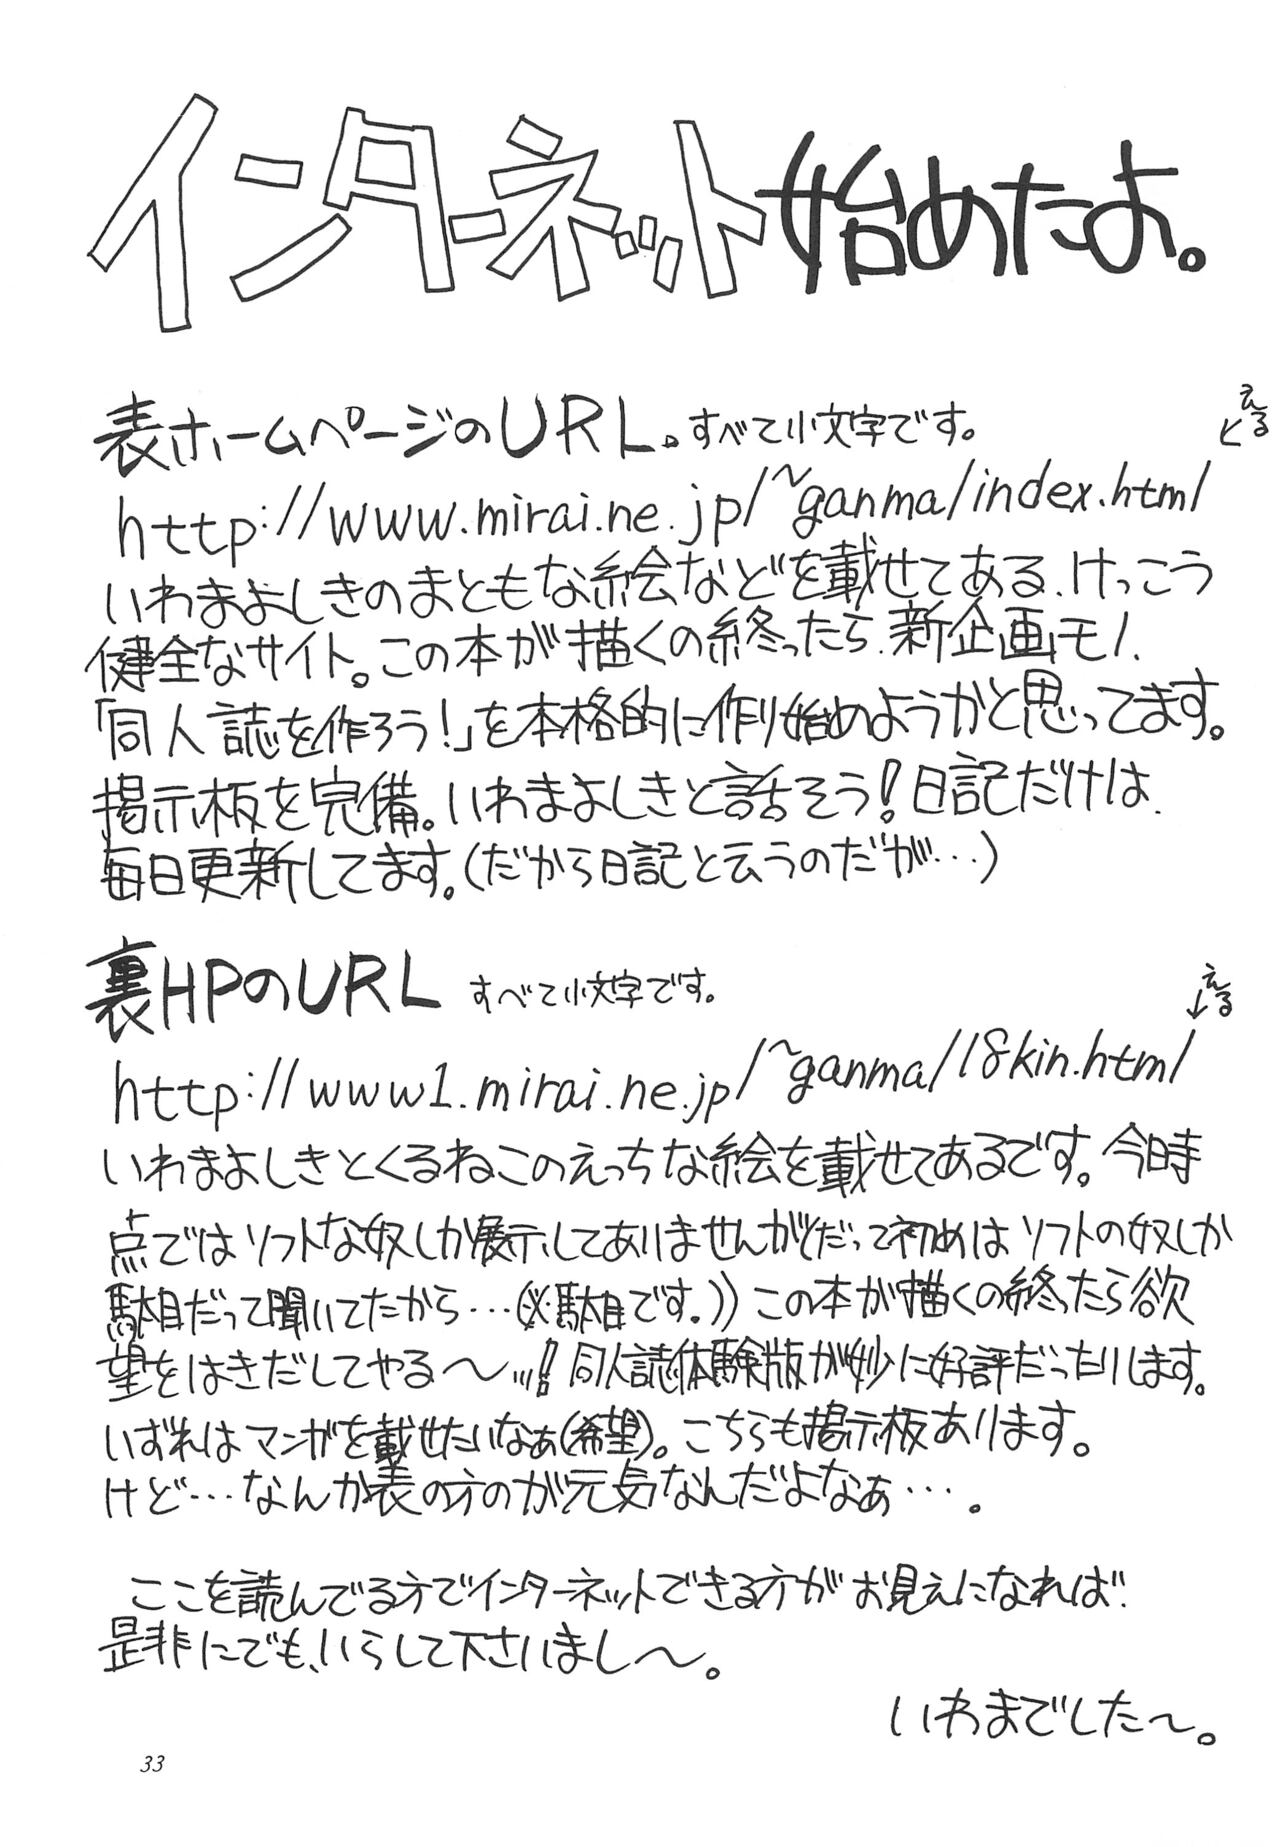 インターネット始めたよ。
表ホームページのURL。すべて小文字です。
↓える
http://www.mirai.ne.jp/~ganma/index.html
いわまよしきのまともな絵などを載せてある、けっこう
健全なサイト。この本が描くの終ったら、新企画モノ、
「同人誌を作ろう!」を本格的に作り始めようかと思ってます。
掲示板を完備。いわまよしきと話そう!日記だけは、
毎日更新してます。(だから日記と云うのだが…)
裏HPのURL すべて小文字です。
↓える
http://www1.mirai.ne.jp/~ganma/18kin.html
いわまよしきとくるねこのえっちな絵を載せてあるです。今日時
点ではソフトな奴しか展示してありませんが(だって初めはソフトの奴しか
駄目だって聞いてたから…(※駄目です。))この本が描くの終ったら欲
望をはきだしてやる〜…!同人誌体験版が妙に好評だったりします。
いずれはマンガを載せたいなぁ(希望)。こちらも掲示板あります。
けど…なんか表の方のが元気なんだよなぁ…。
ここを読んでる方でインターネットできる方がお見えになれば、
是非にでも、いらして下さいまし〜。
いわまでした〜。
33